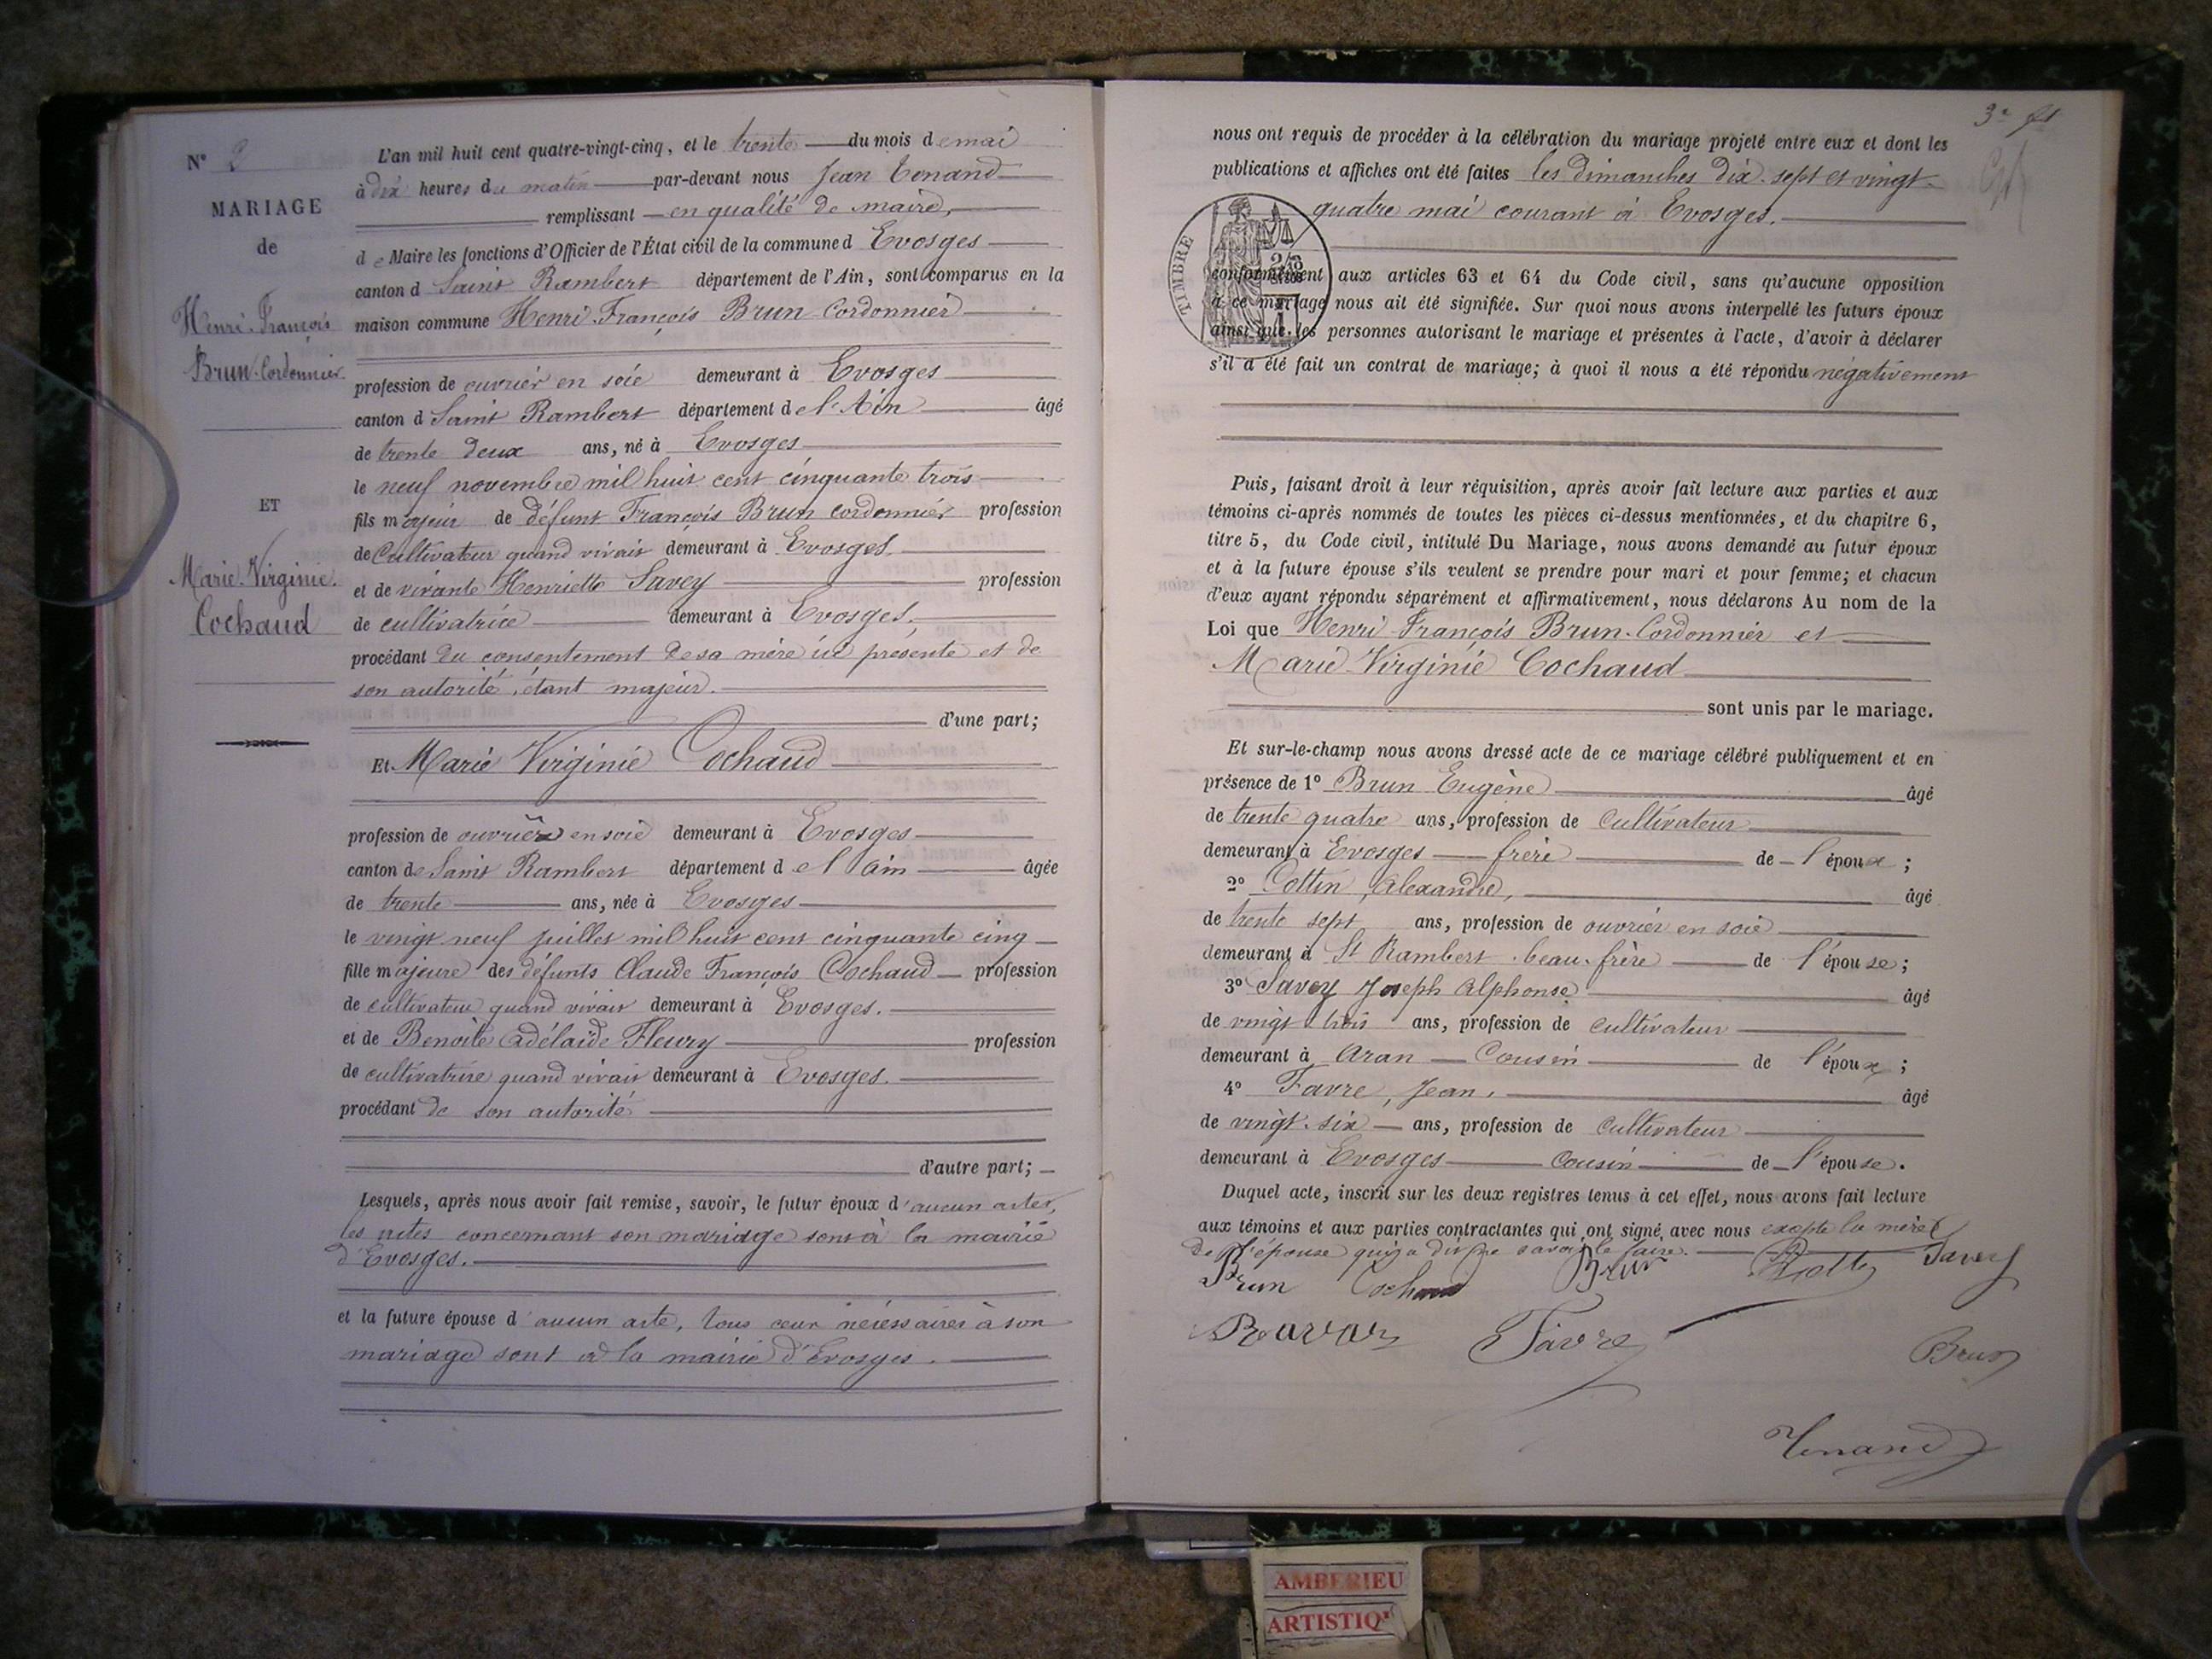 N° 2
MARIAGE
de
Henri-François
Brun-Cordonnier
ET
Marie-Virginie
Cochaud
L'an mil huit cent quatre-vingt-cinq, et le trente du mois de mai
à dix heures du matin par-devant nous Jean Tenand
remplissant en qualité de maire,
de Maire les fonctions d'Officier de l'État civil de la commune d Evosges
canton d Saint Rambert département de l'Ain, sont comparus en la
maison commune Henri-François Brun-Cordonnier
profession de ouvrier en soie demeurant à Evosges
canton d Saint Rambert département de l'Ain âgé
de trente deux ans, né à Evosges
le neuf novembre mil huit cent cinquante trois
fils majeur de défunt François Brun cordonnier profession
de Cultivateur quand vivait demeurant à Evosges
et de vivante Henriette Savey profession
de cultivatrice demeurant à Evosges.
procédant du consentement de sa mère ici présente et de
son autorité, étant majeur.
d'une part;
Et Marie Virginie Cochaud
profession de ouvrière en soie demeurant à Evosges
canton de Saint Rambert département de l'ain âgée
de trente ans, née à Evosges
le vingt neuf juillet mil huit cent cinquante cinq
fille majeure des défunts Claude François Cochaud profession
de cultivateur quand vivait demeurant à Evosges.
et de Benoîte Adélaïde Fleury profession
de cultivatrice quand vivait demeurant à Evosges.
procédant de son autorité
d'autre part;
Lesquels, après nous avoir fait remise, savoir, le futur époux d'aucun actes,
les actes concernant son mariage sont à la mairie
d'Evosges.
et la future épouse d'aucun acte, tous ceux nécessaires à son
mariage sont à la mairie d'Evosges.
nous ont requis de procéder à la célébration du mariage projeté entre eux et dont les
publications et affiches ont été faites les dimanches dix-sept et vingt-
quatre mai courant à Evosges.
TIMBRE
conformément aux articles 63 et 64 du Code civil, sans qu'aucune opposition
à ce mariage nous ait été signifiée. Sur quoi nous avons interpellé les futurs époux
ainsi que les personnes autorisant le mariage et présentes à l'acte, d'avoir à déclarer
s'il a été fait un contrat de mariage; à quoi il nous a été répondu négativement
Puis, faisant droit à leur réquisition, après avoir fait lecture aux parties et aux
témoins ci-après nommés de toutes les pièces ci-dessus mentionnées, et du chapitre 6,
titre 5, du Code civil, intitulé Du Mariage, nous avons demandé au futur époux
et à la future épouse s'ils veulent se prendre pour mari et pour femme; et chacun
d'eux ayant répondu séparément et affirmativement, nous déclarons Au nom de la
Loi que Henri-François Brun-Cordonnier et
Marie-Virginie Cochaud
sont unis par le mariage.
Et sur-le-champ nous avons dressé acte de ce mariage célébré publiquement et en
présence de 1° Brun Eugène âgé
de trente quatre ans, profession de cultivateur
demeurant à Evosges frère de l'époux;
2° Cottin, Alexandre, âgé
de trente sept ans, profession de ouvrier en soie
demeurant à St Rambert beau-frère de l'épouse;
3° Savey Joseph Alphonse âgé
de vingt trois ans, profession de cultivateur
demeurant à Aran Cousin de l'époux;
4° Favre, Jean, âgé
de vingt-six ans, profession de cultivateur
demeurant à Evosges Cousin de l'épouse.
Duquel acte, inscrit sur les deux registres tenus à cet effet, nous avons fait lecture
aux témoins et aux parties contractantes qui ont signé avec nous excepté la mère
de l'épouse qui a dit ne savoir le faire.
Brun Cochaud Brun Savey
Favre Brun
Tenand
AMBERIEU
ARTISTIQ